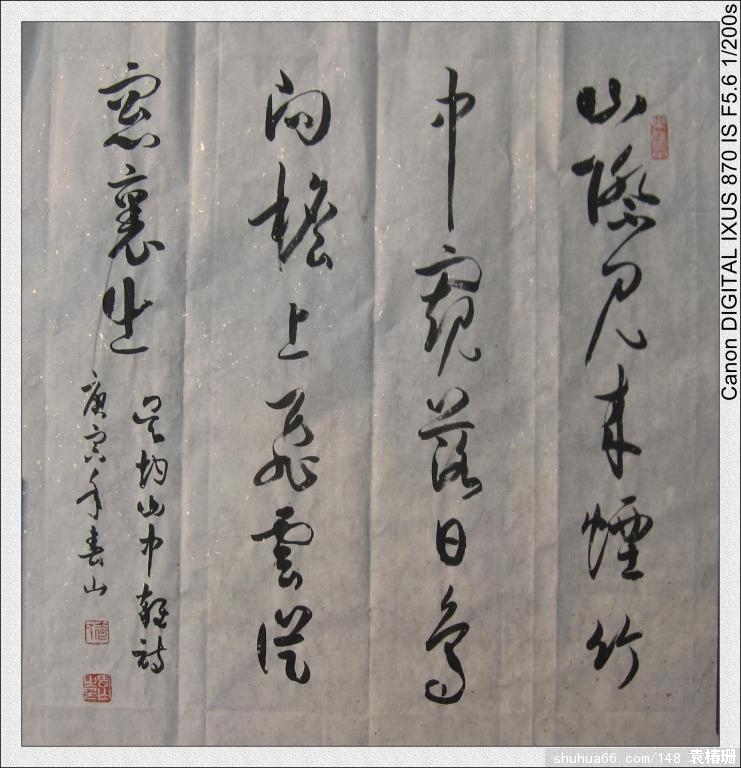 山際見來煙竹
中窺落日鳥
向檐上飛雲從
窓裏出
吳均山中雜詩
庚寅年春山
Canon DIGITAL IXUS 870 IS F5.6 1/200s
shuhua66.com/148 袁椿珊